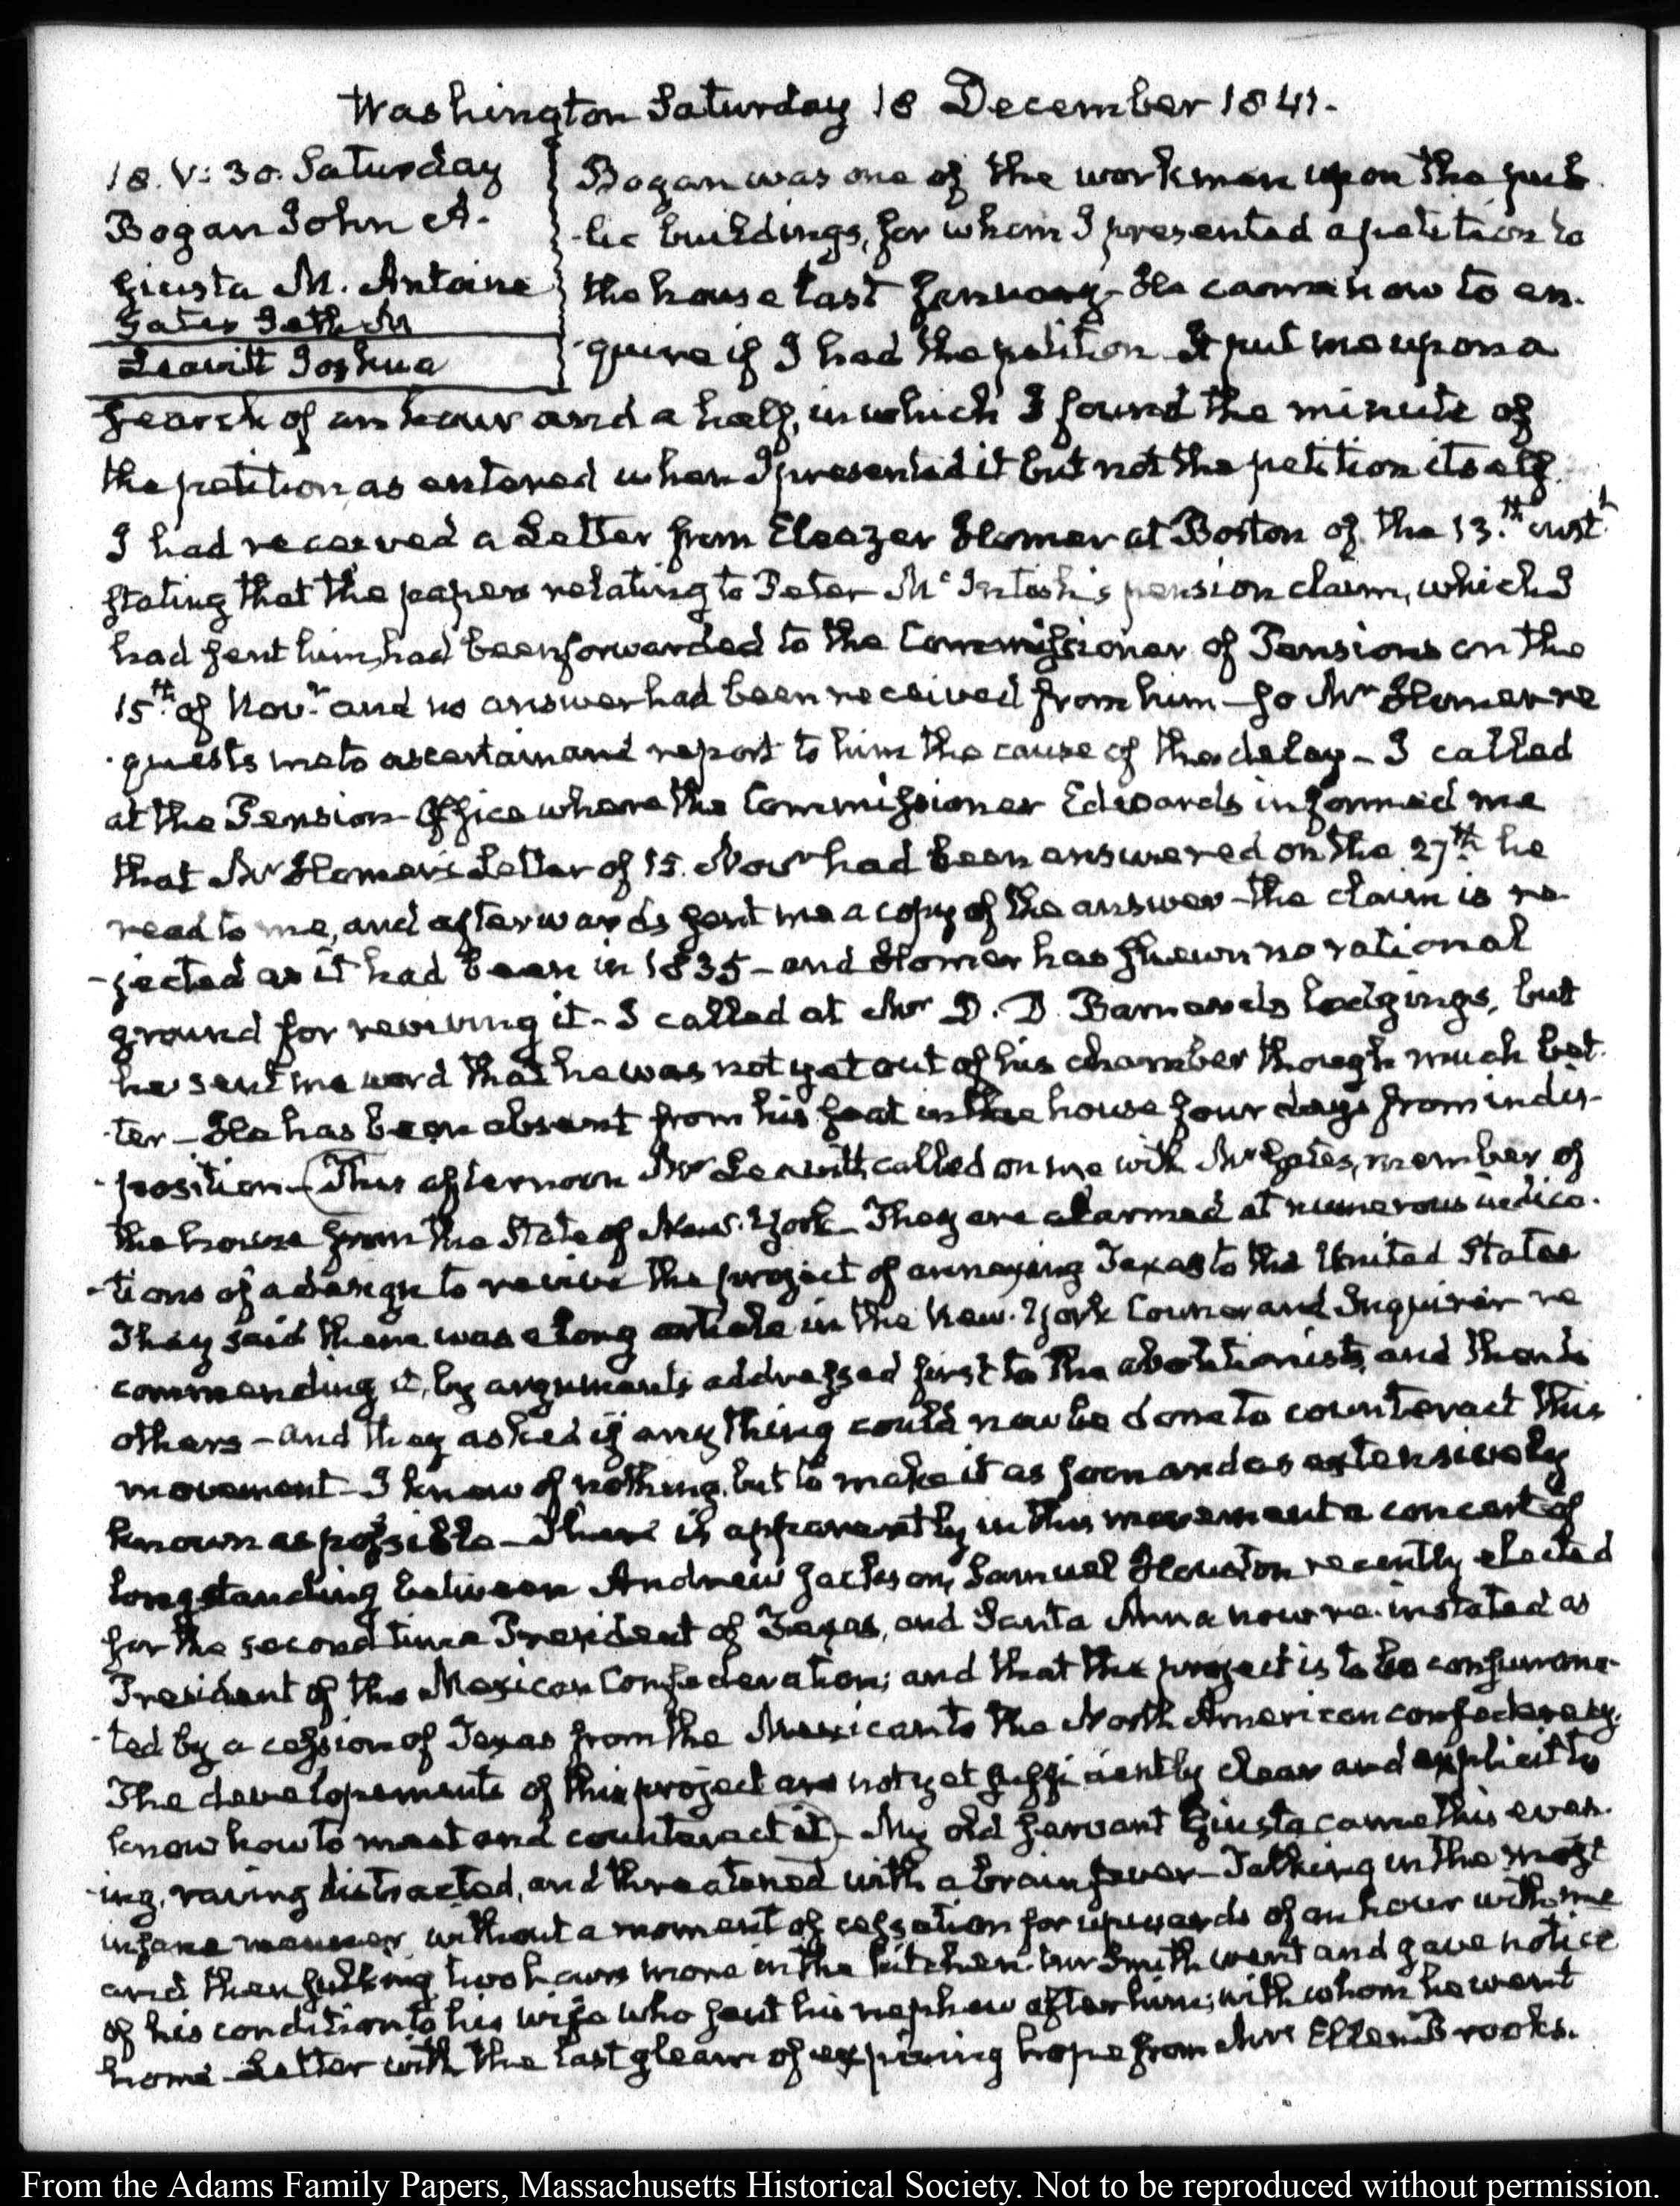 Washington Saturday 18 December 1841.
18. V: 30. Saturday
Bogan John A.
Giusta M. Antoine
Gates Seth M
Leavitt Joshua
Bogan was one of the workmen upon the pub
-lic buildings, for whom I presented a petition to
the house last January- He came now to en.
-quire if I had the petition It put me upon a
search of an hour and a half, in which I found the minute of
the petition as entered when I presented it but not the petition itself.
I had received a Letter from Eleazer Homer at Boston of the 13.th inst.t
stating that the papers relating to Peter Mc Intosh's pension claim, which I
had sent him, had been forwarded to the Commissioner of Pensions on the
15th. of Nov.r and no answer had been received from him - so Mr Homer re
-quests me to ascertain and report to him the cause of the delay - I called
at the Pension-Office where the Commissioner Edwards informed me
that Mr Homer's Letter of 15. Novr had been answered on the 27th. he
read to me, and afterwards sent me a copy of the answer - the claim is re-
-jected as it had been in 1835 - and Homer has shewn no rational
ground for reviving it - I called at Mr D. D. Barnard's lodgings, but
he sent me word that he was not yet out of his chamber though much bet.
-ter - He has been absent from his seat in the house four days from indis-
-position - (This afternoon Mr Leavitt called on me with Mr Gates, member of
the house from the State of New-York - They are alarmed at numerous indica.
-tions of a design to revive the project of annexing Texas to the United States
They said there was a long article in the New-York Courier and Inquirer re
commending it, by arguments addressed first to the abolitionists, and then to
others - and they asked if any thing could now be done to counteract this
movement - I knew of nothing, but to make it as soon and as extensively
known as possible - There is apparently in this movement a concert of
long standing between Andrew Jackson, Samuel Houston recently elected
for the second time President of Texas, and Santa Anna now re-instated as
President of the Mexican Confederation; and that the project is to be consumma-
-ted by a cession of Texas from the Mexican to the North American confederacy.
The developements of this project are not yet sufficiently clear and explicit to
know how to meet and counteract it) - My old servant Giusta came this even.
-ing, raving distracted, and threatened with a brain fever - Talking in the most
insane manner, without a moment of cessation for upwards of an hour with me
and then sulking two hours more in the kitchen. Mr Smith went and gave notice
of his condition to his wife who sent his nephew after him; with whom he went
home - Letter with the last gleam of expiring hope from Mrs Ellen Brooks.
From the Adams Family Papers, Massachusetts Historical Society. Not to be reproduced without permission.